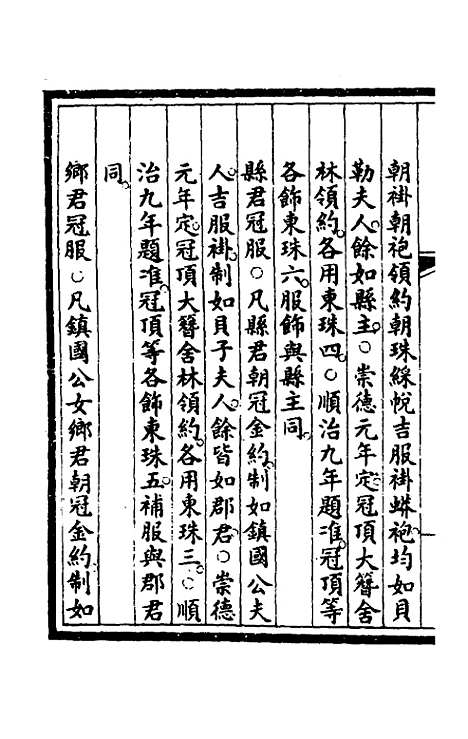 朝褂朝袍領約朝珠綵帨吉服褂蟒袍均如貝
勒夫人餘如縣主○崇德元年定冠頂大簪舍
林領約各用東珠四○順治九年題准冠頂等
各飾東珠六服飾與縣主同
縣君冠服○凡縣君朝冠金約制如鎮國公夫
人吉服褂制如貝子夫人餘皆如郡君○崇德
元年定冠頂大簪舍林領約各用東珠三○順
治九年題准冠頂等各飾東珠五補服與郡君
同
鄉君冠服○凡鎮國公女鄉君朝冠金約制如